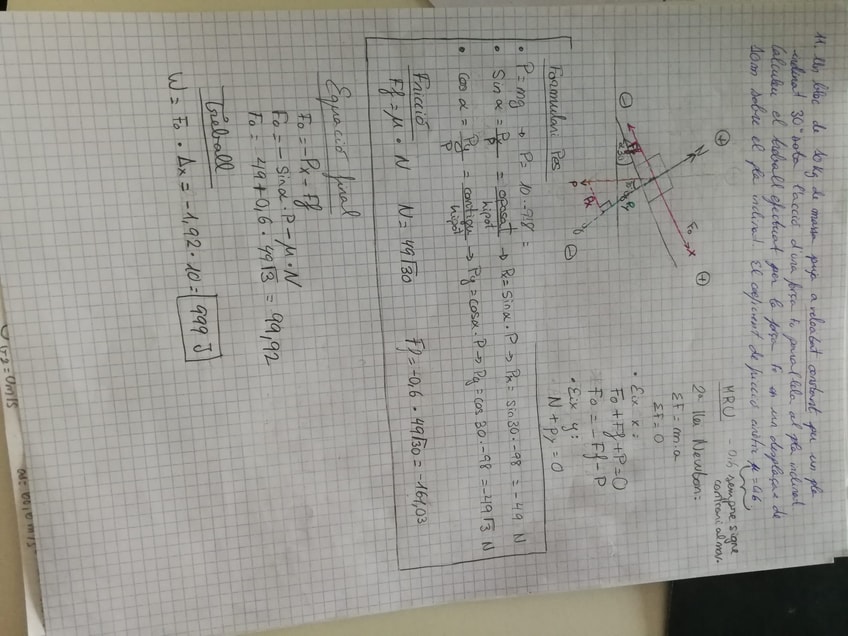 11. Un bloc de 10 Kg de massa puja a velocitat constant per un pla
inclinat 30° sota l'acció d'una força Fo paral·lela al pla inclinat
Calculeu el treball efectuat per la força Fo en un desplaçac de
10m sobre el pla inclinat. El coeficient de fricció entre μ = 0,6,
MRU
-0,6 sempre signe
contrari al mov.
2a llei Newton:
ΣF = m·a
ΣF = 0
• Eix x:
Fo + Ff + P = 0
Fo = -Ff - P
• Eix y:
N + Py = 0
+
Fo
x
+
Ff
-
30°
Py
P
Px
y
-
Formulari Pes
• P = mg → P = 10 · -9'8 =
• Sin α = Px/P = oposat/hipot → Px = sin α · P → Px = sin 30 · -98 = -49 N
• cos α = Py/P = contigu/hipot → Py = cos α · P → Py = cos 30 · -98 = -49√3 N
Fricció
Ff = μ · N N = 49√30 Ff = -0,6 · 49√30 = -161,03
Equació final
Fo = -Px - Ff
Fo = -sin α · P - μ · N
Fo = 49 + 0,6 · 49√3 = 99,92
Treball
W = Fo · Δx = -1,92 · 10 = 999 J
(t=2 = 0m/s